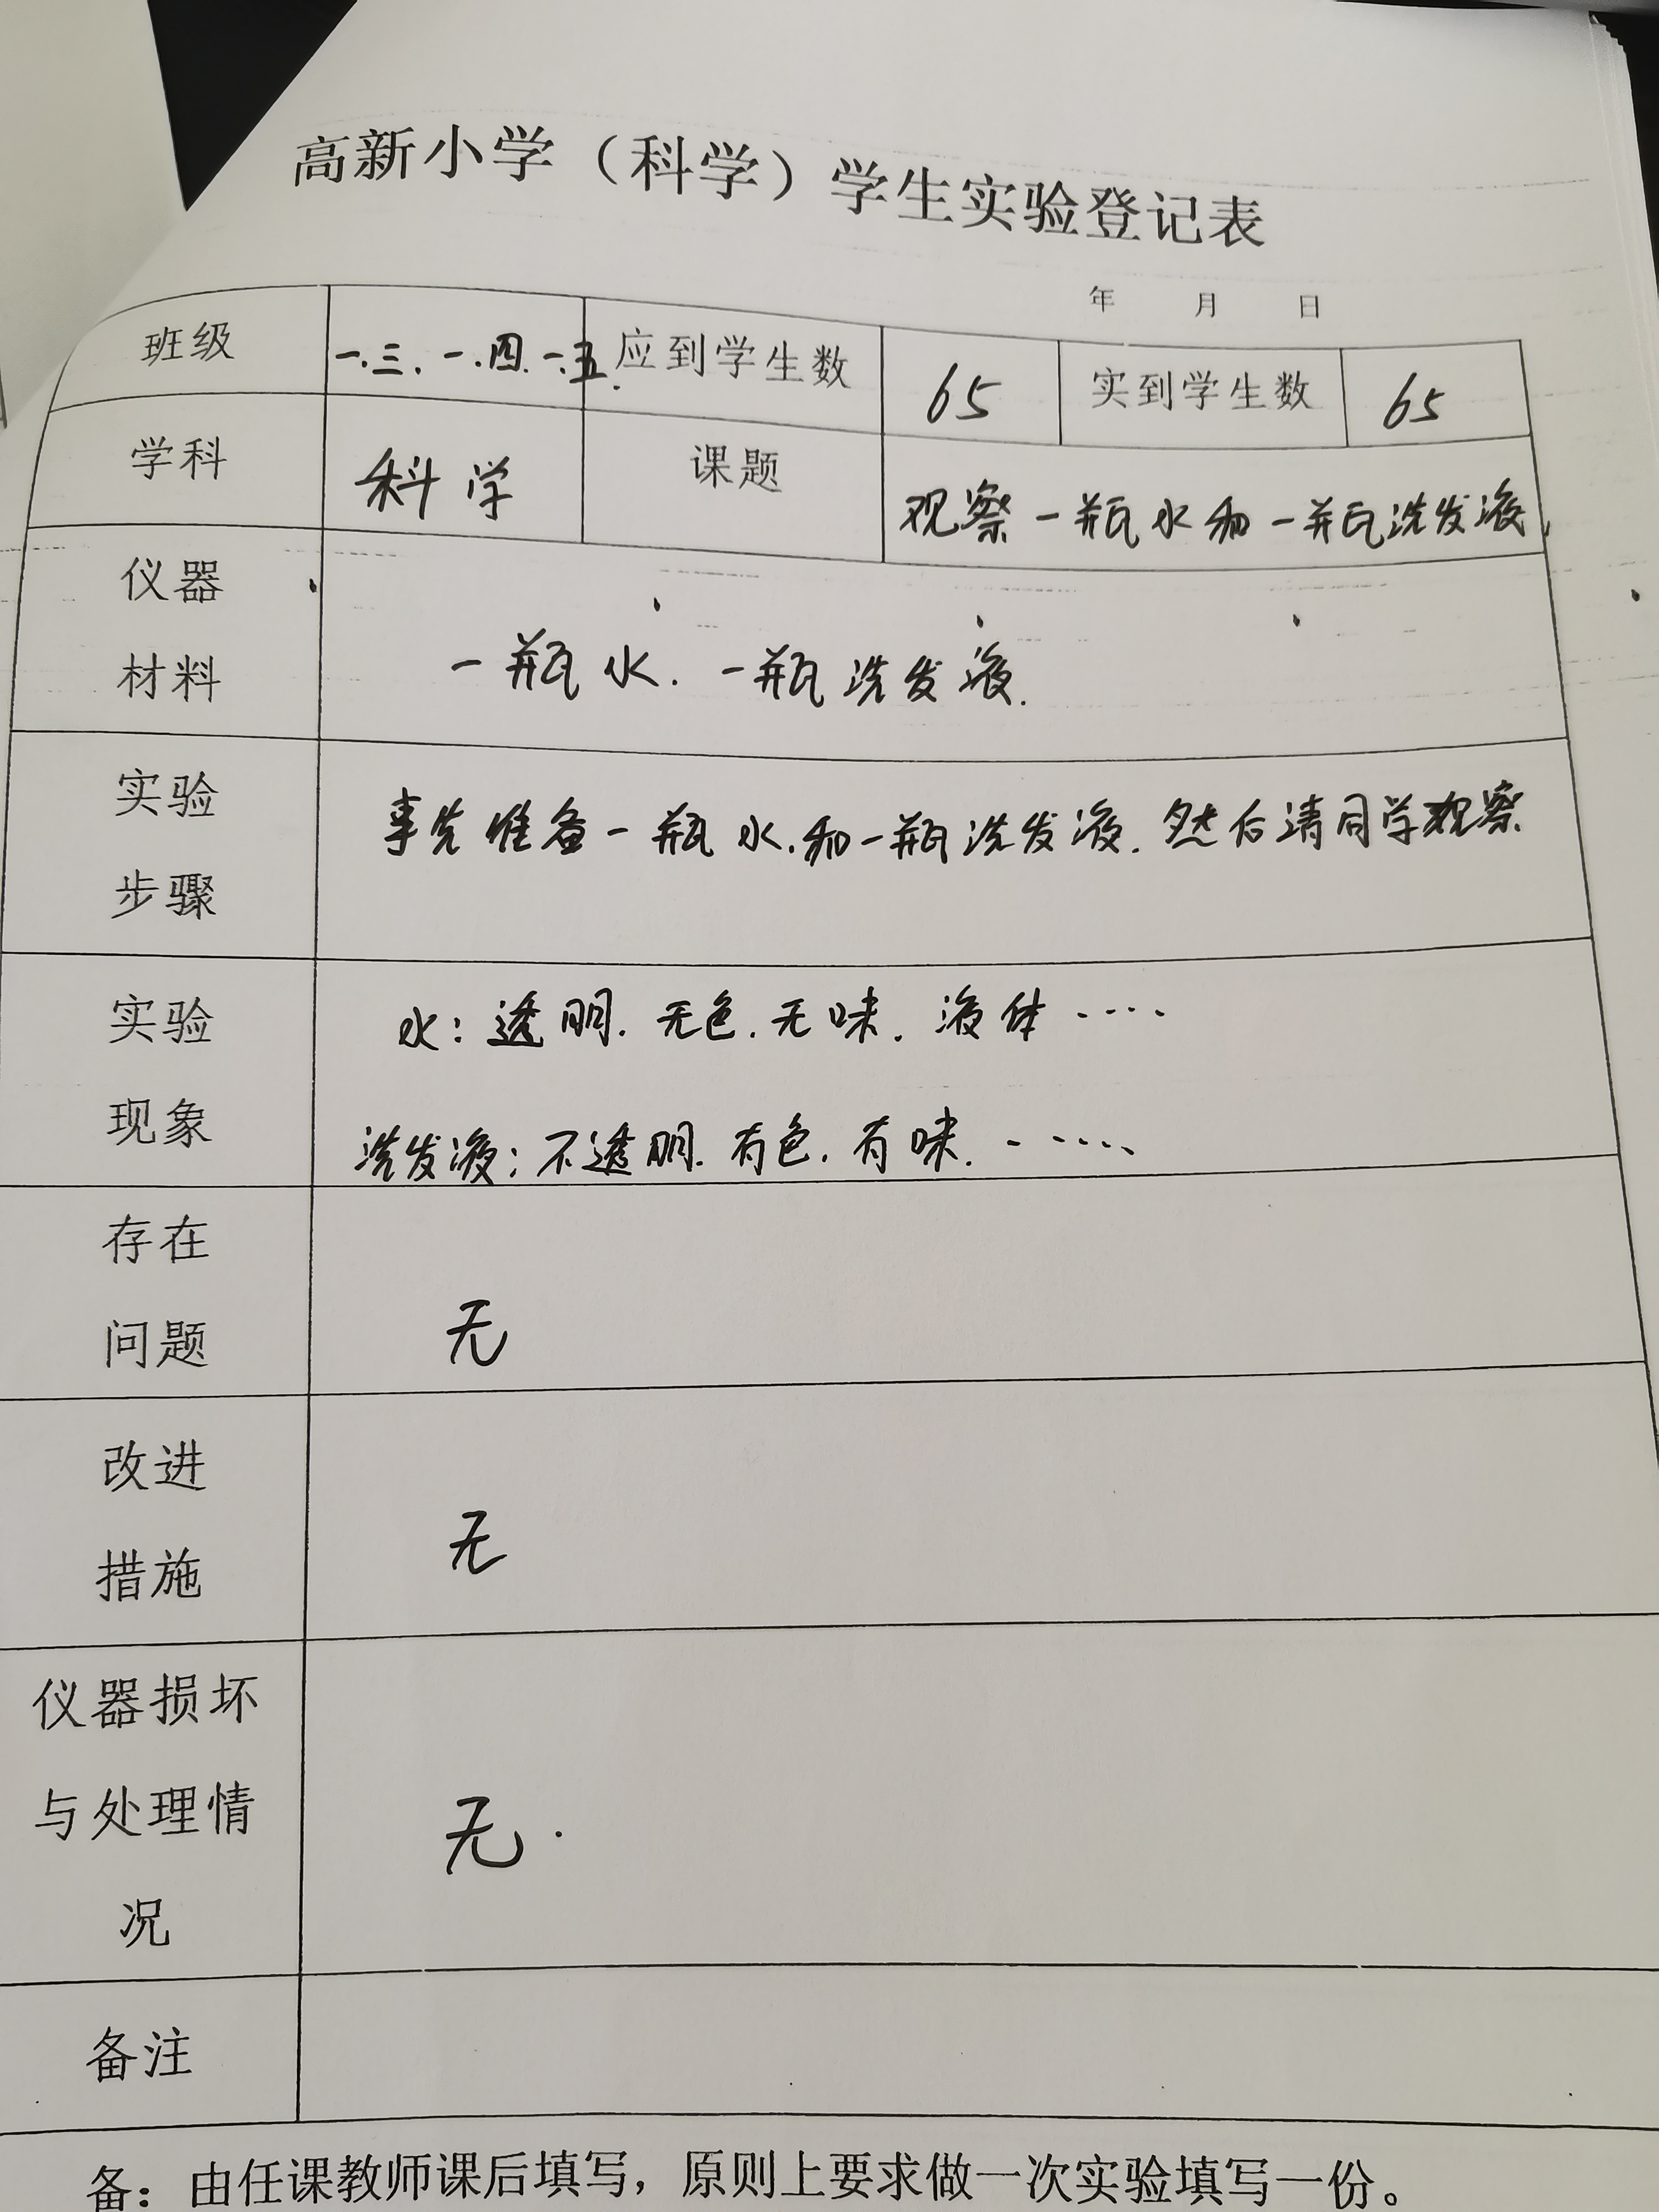 高新小学（科学）学生实验登记表
年 月 日
班级 一.三.一.四.一.五. 应到学生数 65 实到学生数 65
学科 科学 课题 观察一瓶水和一瓶洗发液.
仪器 材料 一瓶水.一瓶洗发液.
实验 步骤 事先准备一瓶水.和一瓶洗发液.然后请同学观察
实验 水：透明.无色.无味.液体....
现象 洗发液：不透明.有色.有味.......
存在
问题 无
改进 无
措施
仪器损坏
与处理情 无.
况
备注
备：由任课教师课后填写，原则上要求做一次实验填写一份。